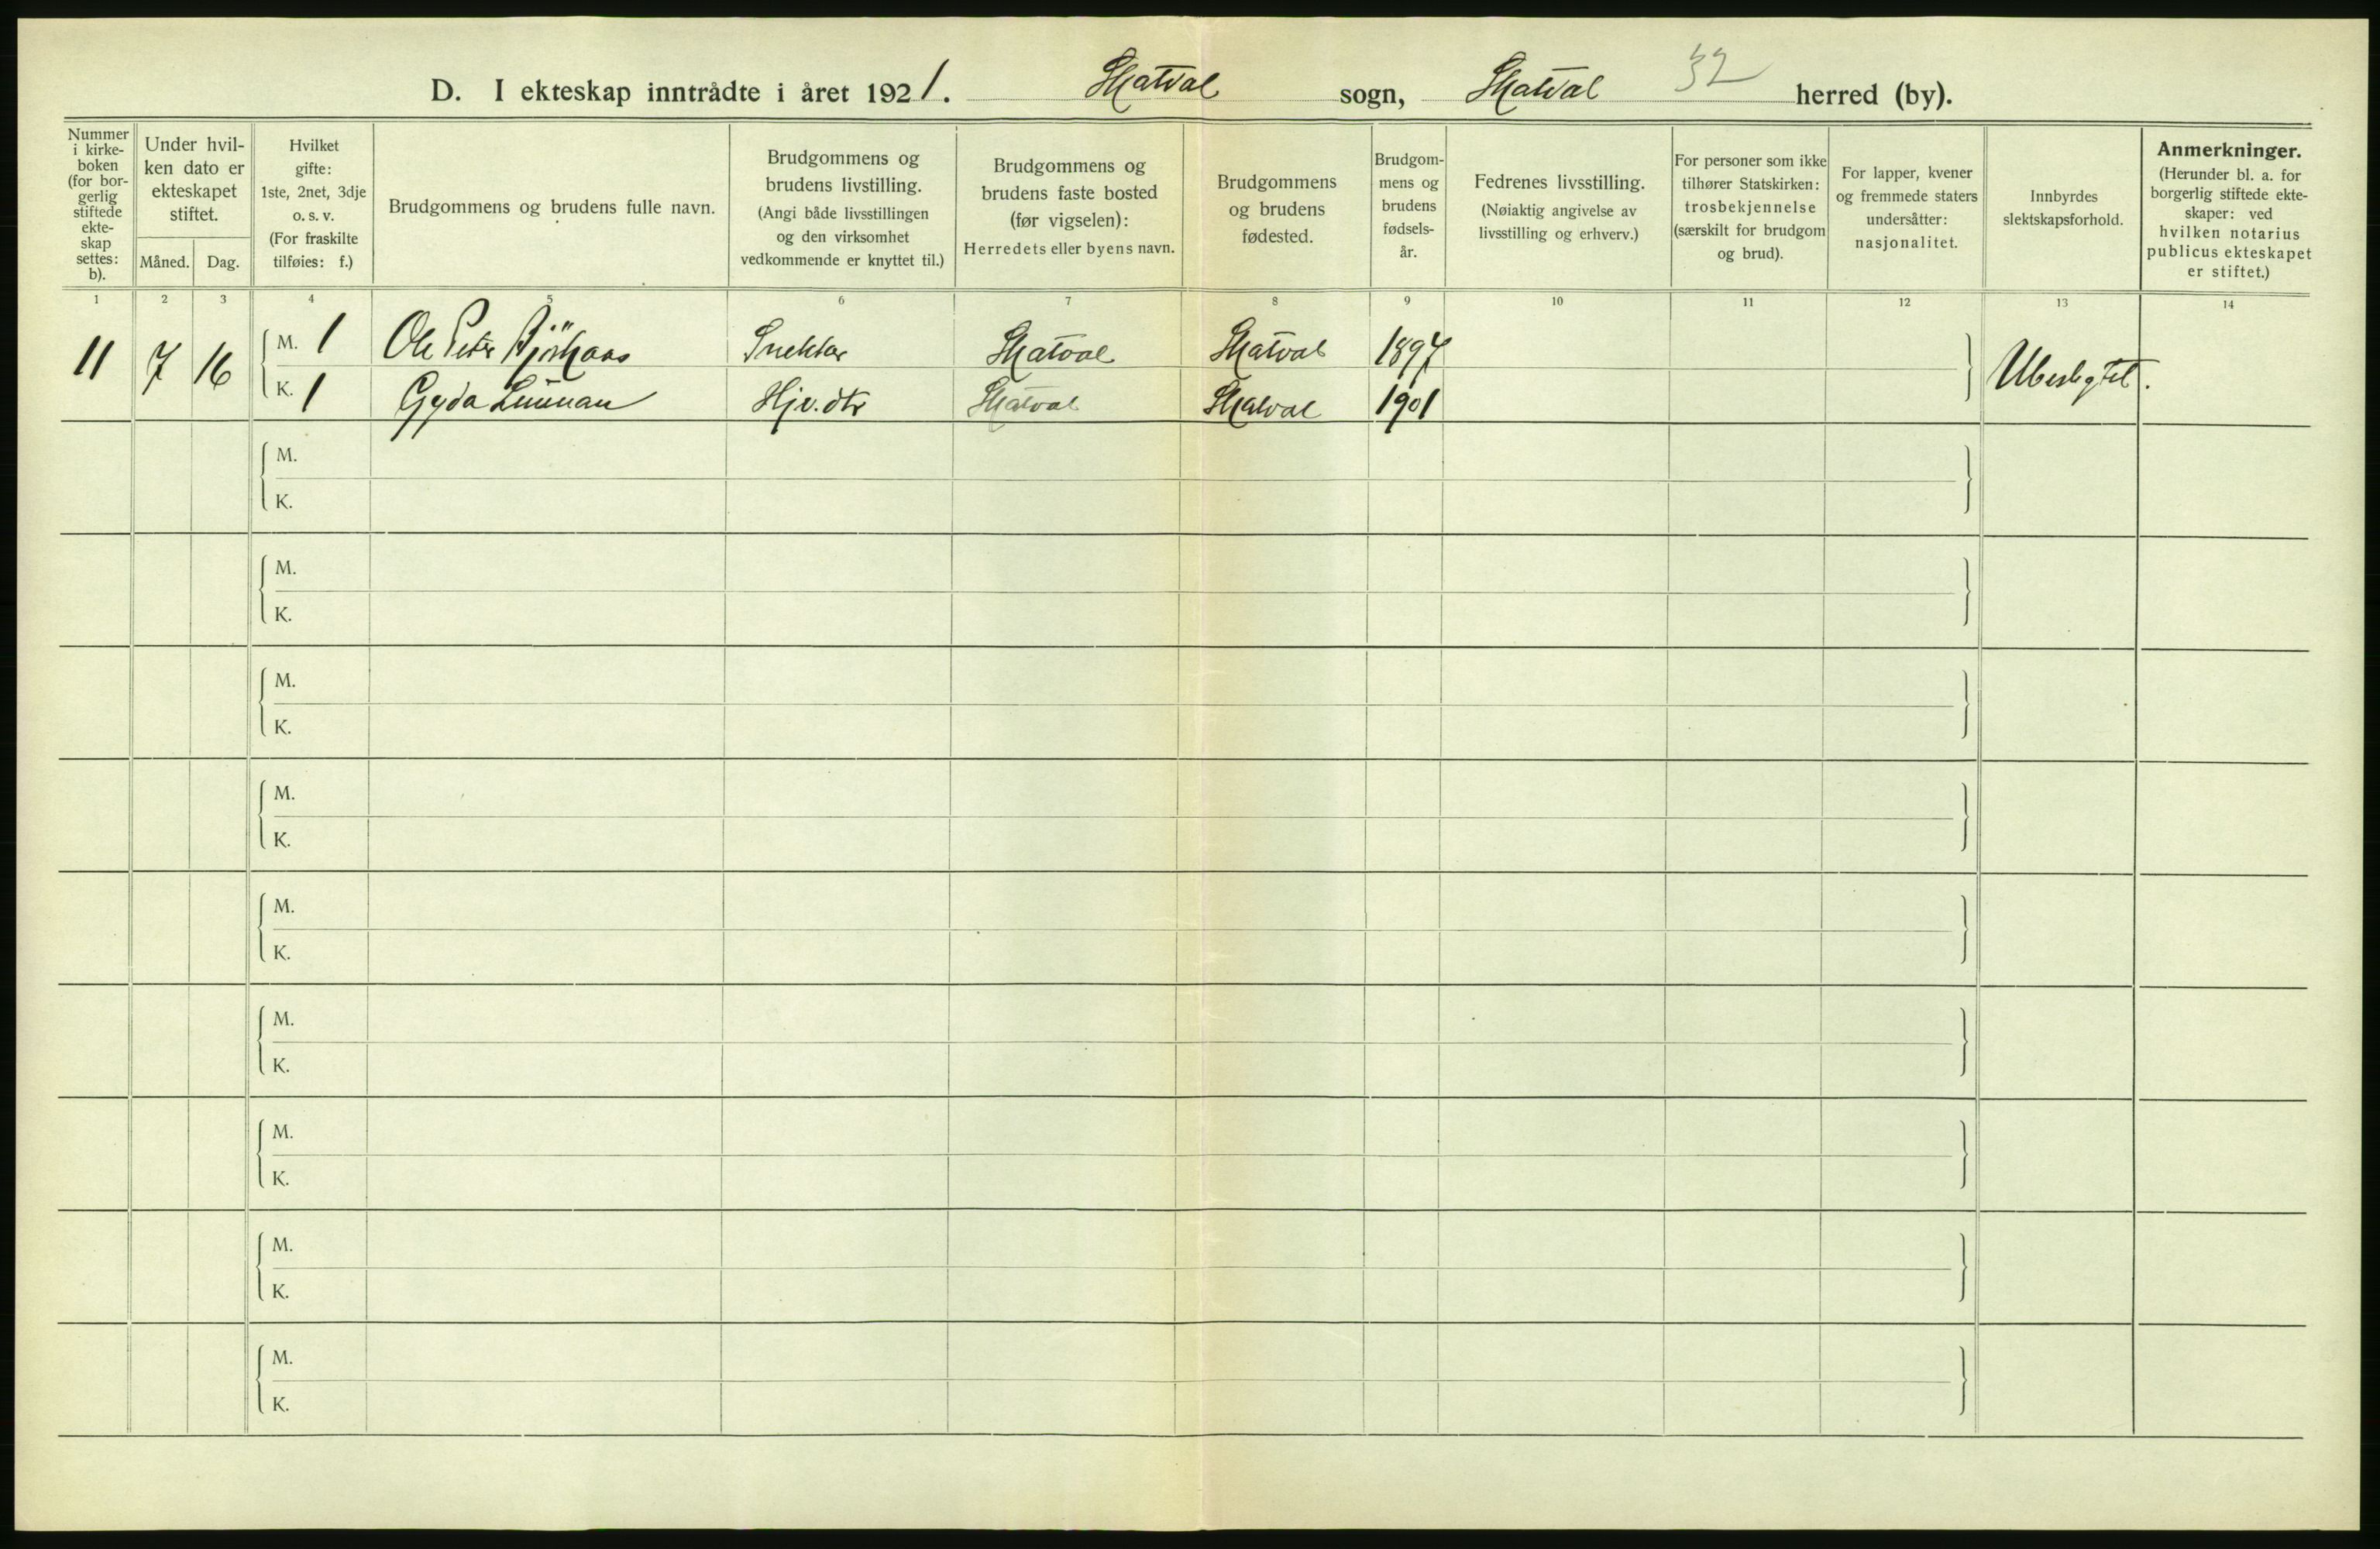 D. I ekteskap inntrådte i året 1921. Skatval sogn, Skatval 32 herred (by).
Nummer i kirke- boken (for bor- gerlig stiftede ekte- skap settes: b).
Under hvil- ken dato er ekteskapet stiftet.
Måned. Dag.
Hvilket gifte: 1ste, 2net, 3dje o. s. v. (For fraskilte tilføies: f.)
Brudgommens og brudens fulle navn.
Brudgommens og brudens livstilling. (Angi både livsstillingen og den virksomhet vedkommende er knyttet til.)
Brudgommens og brudens faste bosted (før vigselen): Herredets eller byens navn.
Brudgommens og brudens fødested.
Brudgom- mens og brudens fødsels- år.
Fedrenes livsstilling. (Nøiaktig angivelse av livsstilling og erhverv.)
For personer som ikke tilhører Statskirken: trosbekjennelse (særskilt for brudgom og brud).
For lapper, kvener og fremmede staters undersåtter: nasjonalitet.
Innbyrdes slektskapsforhold.
Anmerkninger. (Herunder bl. a. for borgerlig stiftede ekte- skaper: ved hvilken notarius publicus ekteskapet er stiftet.)
1 2 3 4 5 6 7 8 9 10 11 12 13 14
11 7 16 M. 1 Ole Peter Snekker Skatval Skatval 1897 Ubeslegtet.
K. 1 Gyda Hjv. dtr Skatval Skatval 1901
M.
K.
M.
K.
M.
K.
M.
K.
M.
K.
M.
K.
M.
K.
M.
K.
M.
K.